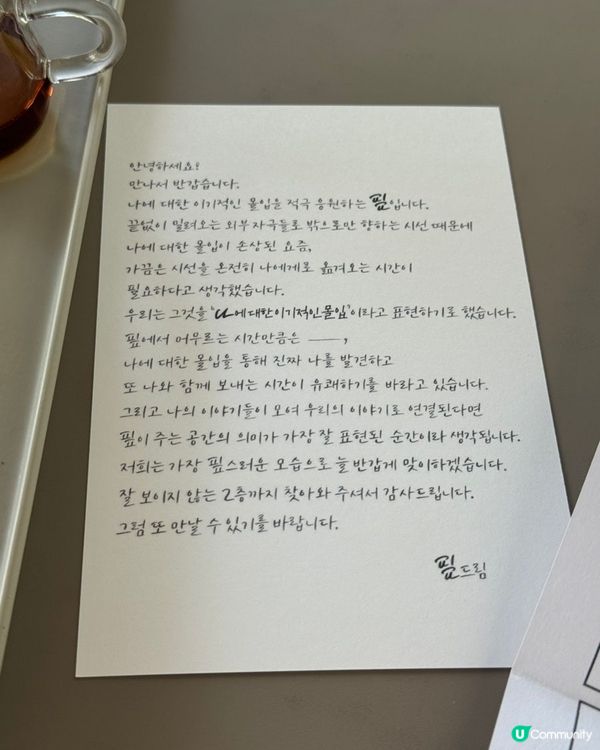 안녕하세요!
만나서 반갑습니다.
나에 대한 이기적인 몰입을 적극 응원하는 핖입니다.
끝없이 밀려오는 외부 자극들로 밖으로만 향하는 시선 때문에
나에 대한 몰입이 손상된 요즘,
가끔은 시선을 온전히 나에게로 옮겨오는 시간이
필요하다고 생각했습니다.
우리는 그것을 '나에 대한 이기적인 몰입'이라고 표현하기로 했습니다.
핖에서 머무르는 시간만큼은 ——,
나에 대한 몰입을 통해 진짜 나를 발견하고
또 나와 함께 보내는 시간이 유쾌하기를 바라고 있습니다.
그리고 나의 이야기들이 모여 우리의 이야기로 연결된다면
핖이 주는 공간의 의미가 가장 잘 표현된 순간이라 생각됩니다.
저희는 가장 핖스러운 모습으로 늘 반갑게 맞이하겠습니다.
잘 보이지 않는 2층까지 찾아와 주셔서 감사드립니다.
그럼 또 만날 수 있기를 바랍니다.
핖드림
U Community